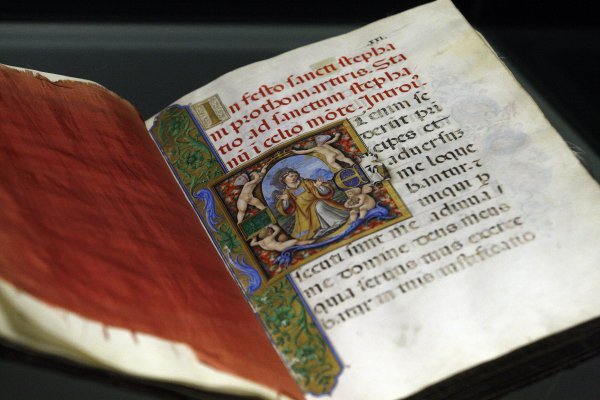 In festo sancti stepha
ni prothomartiris. Sta
tio ad sanctum stepha
num i celio mōte. Introi⁹
Etenim se
derūt pri
cipes et
adversus
me loque
bantur. ⁊
iniqui p
secuti sunt me adiuva
me domine deus meus
quia servus tuus exerce
batur in tuis iustificatio